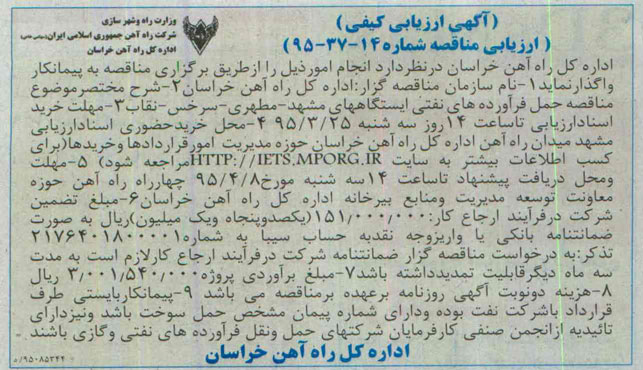 وزارت راه وشهر سازی
شرکت راه آهن جمهوری اسلامی ایران(سهامی خاص)
اداره کل راه آهن خراسان
(آگهی ارزیابی کیفی)
( ارزیابی مناقصه شماره۱۴-۳۷-۹۵)
اداره کل راه آهن خراسان درنظردارد انجام امورذیل را ازطریق برگزاری مناقصه به پیمانکار
واگذارنماید۱-نام سازمان مناقصه گزار:اداره کل راه آهن خراسان۲-شرح مختصرموضوع
مناقصه حمل فرآورده های نفتی ایستگاههای مشهد-مطهری-سرخس-نقاب۳-مهلت خرید
اسنادارزیابی تاساعت ۱۴روز سه شنبه ۹۵/۳/۲۵ ۴-محل خریدحضوری اسنادارزیابی
مشهد میدان راه آهن اداره کل راه آهن خراسان حوزه مدیریت امورقراردادها وخریدها(برای
کسب اطلاعات بیشتر به سایت HTTP://IETS.MPORG.IRمراجعه شود) ۵-مهلت
ومحل دریافت پیشنهاد تاساعت ۱۴سه شنبه مورخ۹۵/۴/۸ چهارراه راه آهن حوزه
معاونت توسعه مدیریت ومنابع بیرخانه اداره کل راه آهن خراسان۶-مبلغ تضمین
شرکت درفرآیند ارجاع کار:۱۵۱/۰۰۰/۰۰۰(یکصدوپنجاه ویک میلیون)ریال به صورت
ضمانتنامه بانکی یا واریزوجه نقدبه حساب سیبا به شماره۲۱۷۶۴۰۱۸۰۰۰۰۱
تذکر:به درخواست مناقصه گزار ضمانتنامه شرکت درفرآیند ارجاع کارلازم است به مدت
سه ماه دیگرقابلیت تمدیدداشته باشد۷-مبلغ برآوردی پروژه۳/۰۰۱/۵۴۰/۰۰۰ ریال
۸-هزینه دونوبت آگهی روزنامه برعهده برمناقصه می باشد ۹-پیمانکاربایستی طرف
قرارداد باشرکت نفت بوده ودارای شماره پیمان مشخص حمل سوخت باشد ونیزدارای
تائیدیه ازانجمن صنفی کارفرمایان شرکتهای حمل ونقل فرآورده های نفتی وگازی باشند
اداره کل راه آهن خراسان
۹۵۰۸۵۳۴۴/ه